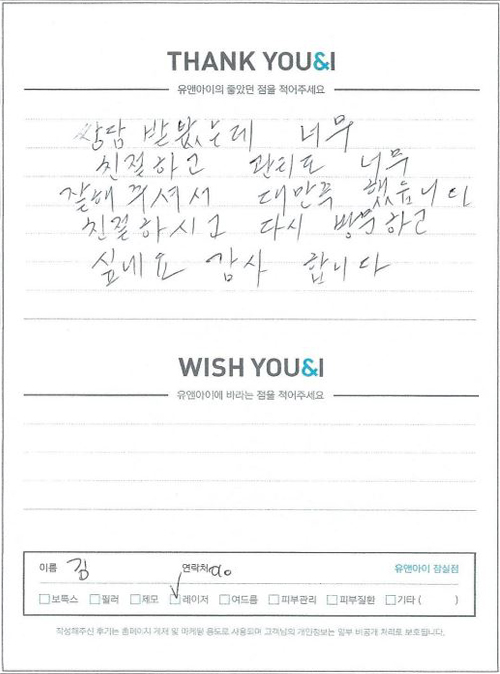 THANK YOU&I
유앤아이의 좋았던 점을 적어주세요
상담 받았는데 너무
친절하고 관리도 너무
잘해 주셔서 대만족 했습니다
친절하시고 다시 방문하고
싶네요 감사 합니다
WISH YOU&I
유앤아이에 바라는 점을 적어주세요
이름 김 연락처 010 유앤아이 잠실점
보톡스 필러 제모 레이저 여드름 피부관리 피부질환 기타 ( )
작성해주신 후기는 홈페이지 게재 및 마케팅 용도로 사용되며 고객님의 개인정보는 일부 비공개 처리로 보호됩니다.